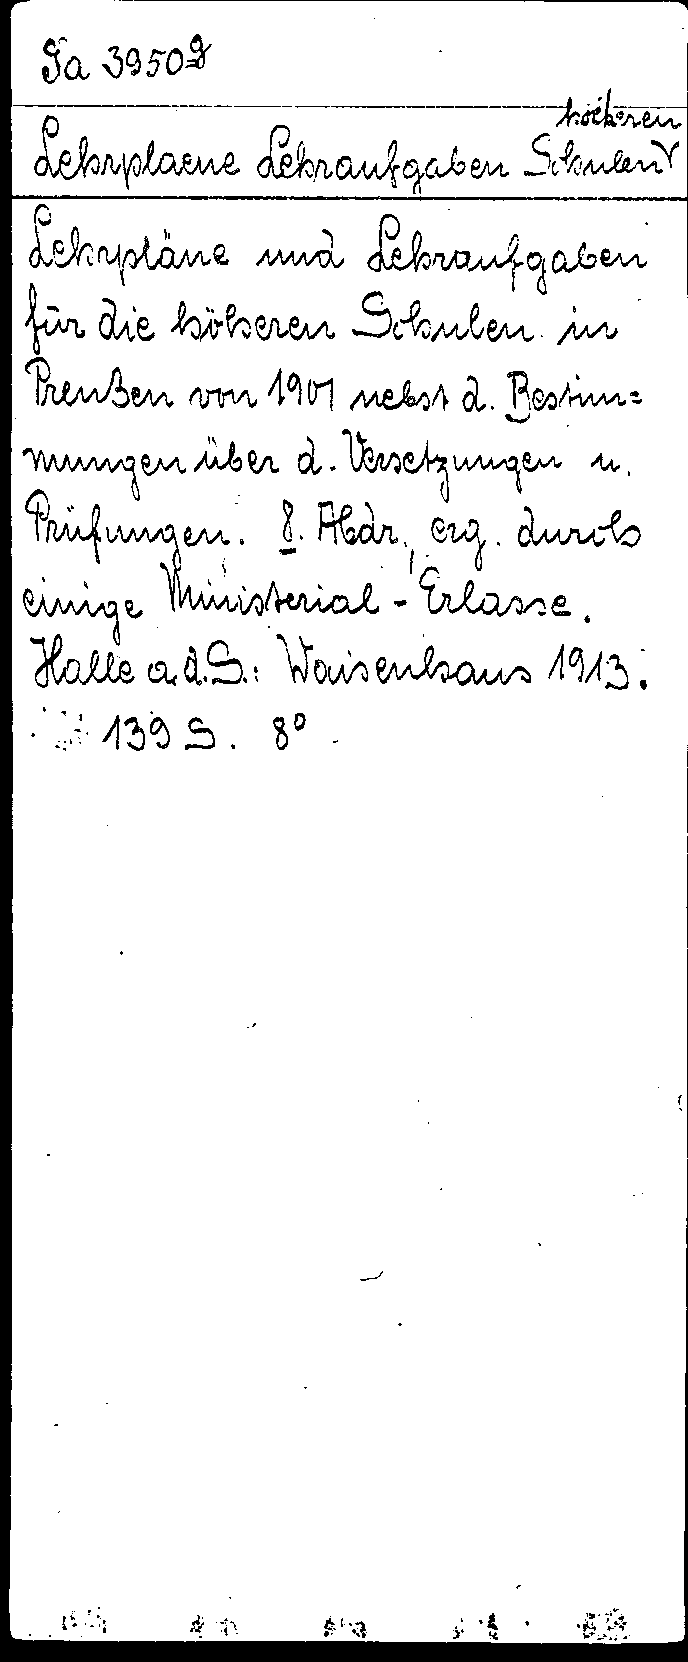 Ja 3950g
hoeheren
Lehrplaene Lehraufgaben Schulen
Lehrpläne und Lehraufgaben
für die höheren Schulen in
Preußen von 1901 nebst d. Bestim=
mungen über d. Versetzungen u.
Prüfungen. 8. Abdr., erg. durch
einige Ministerial-Erlasse.
Halle a.d.S.: Waisenhaus 1913.
139 S. 8°